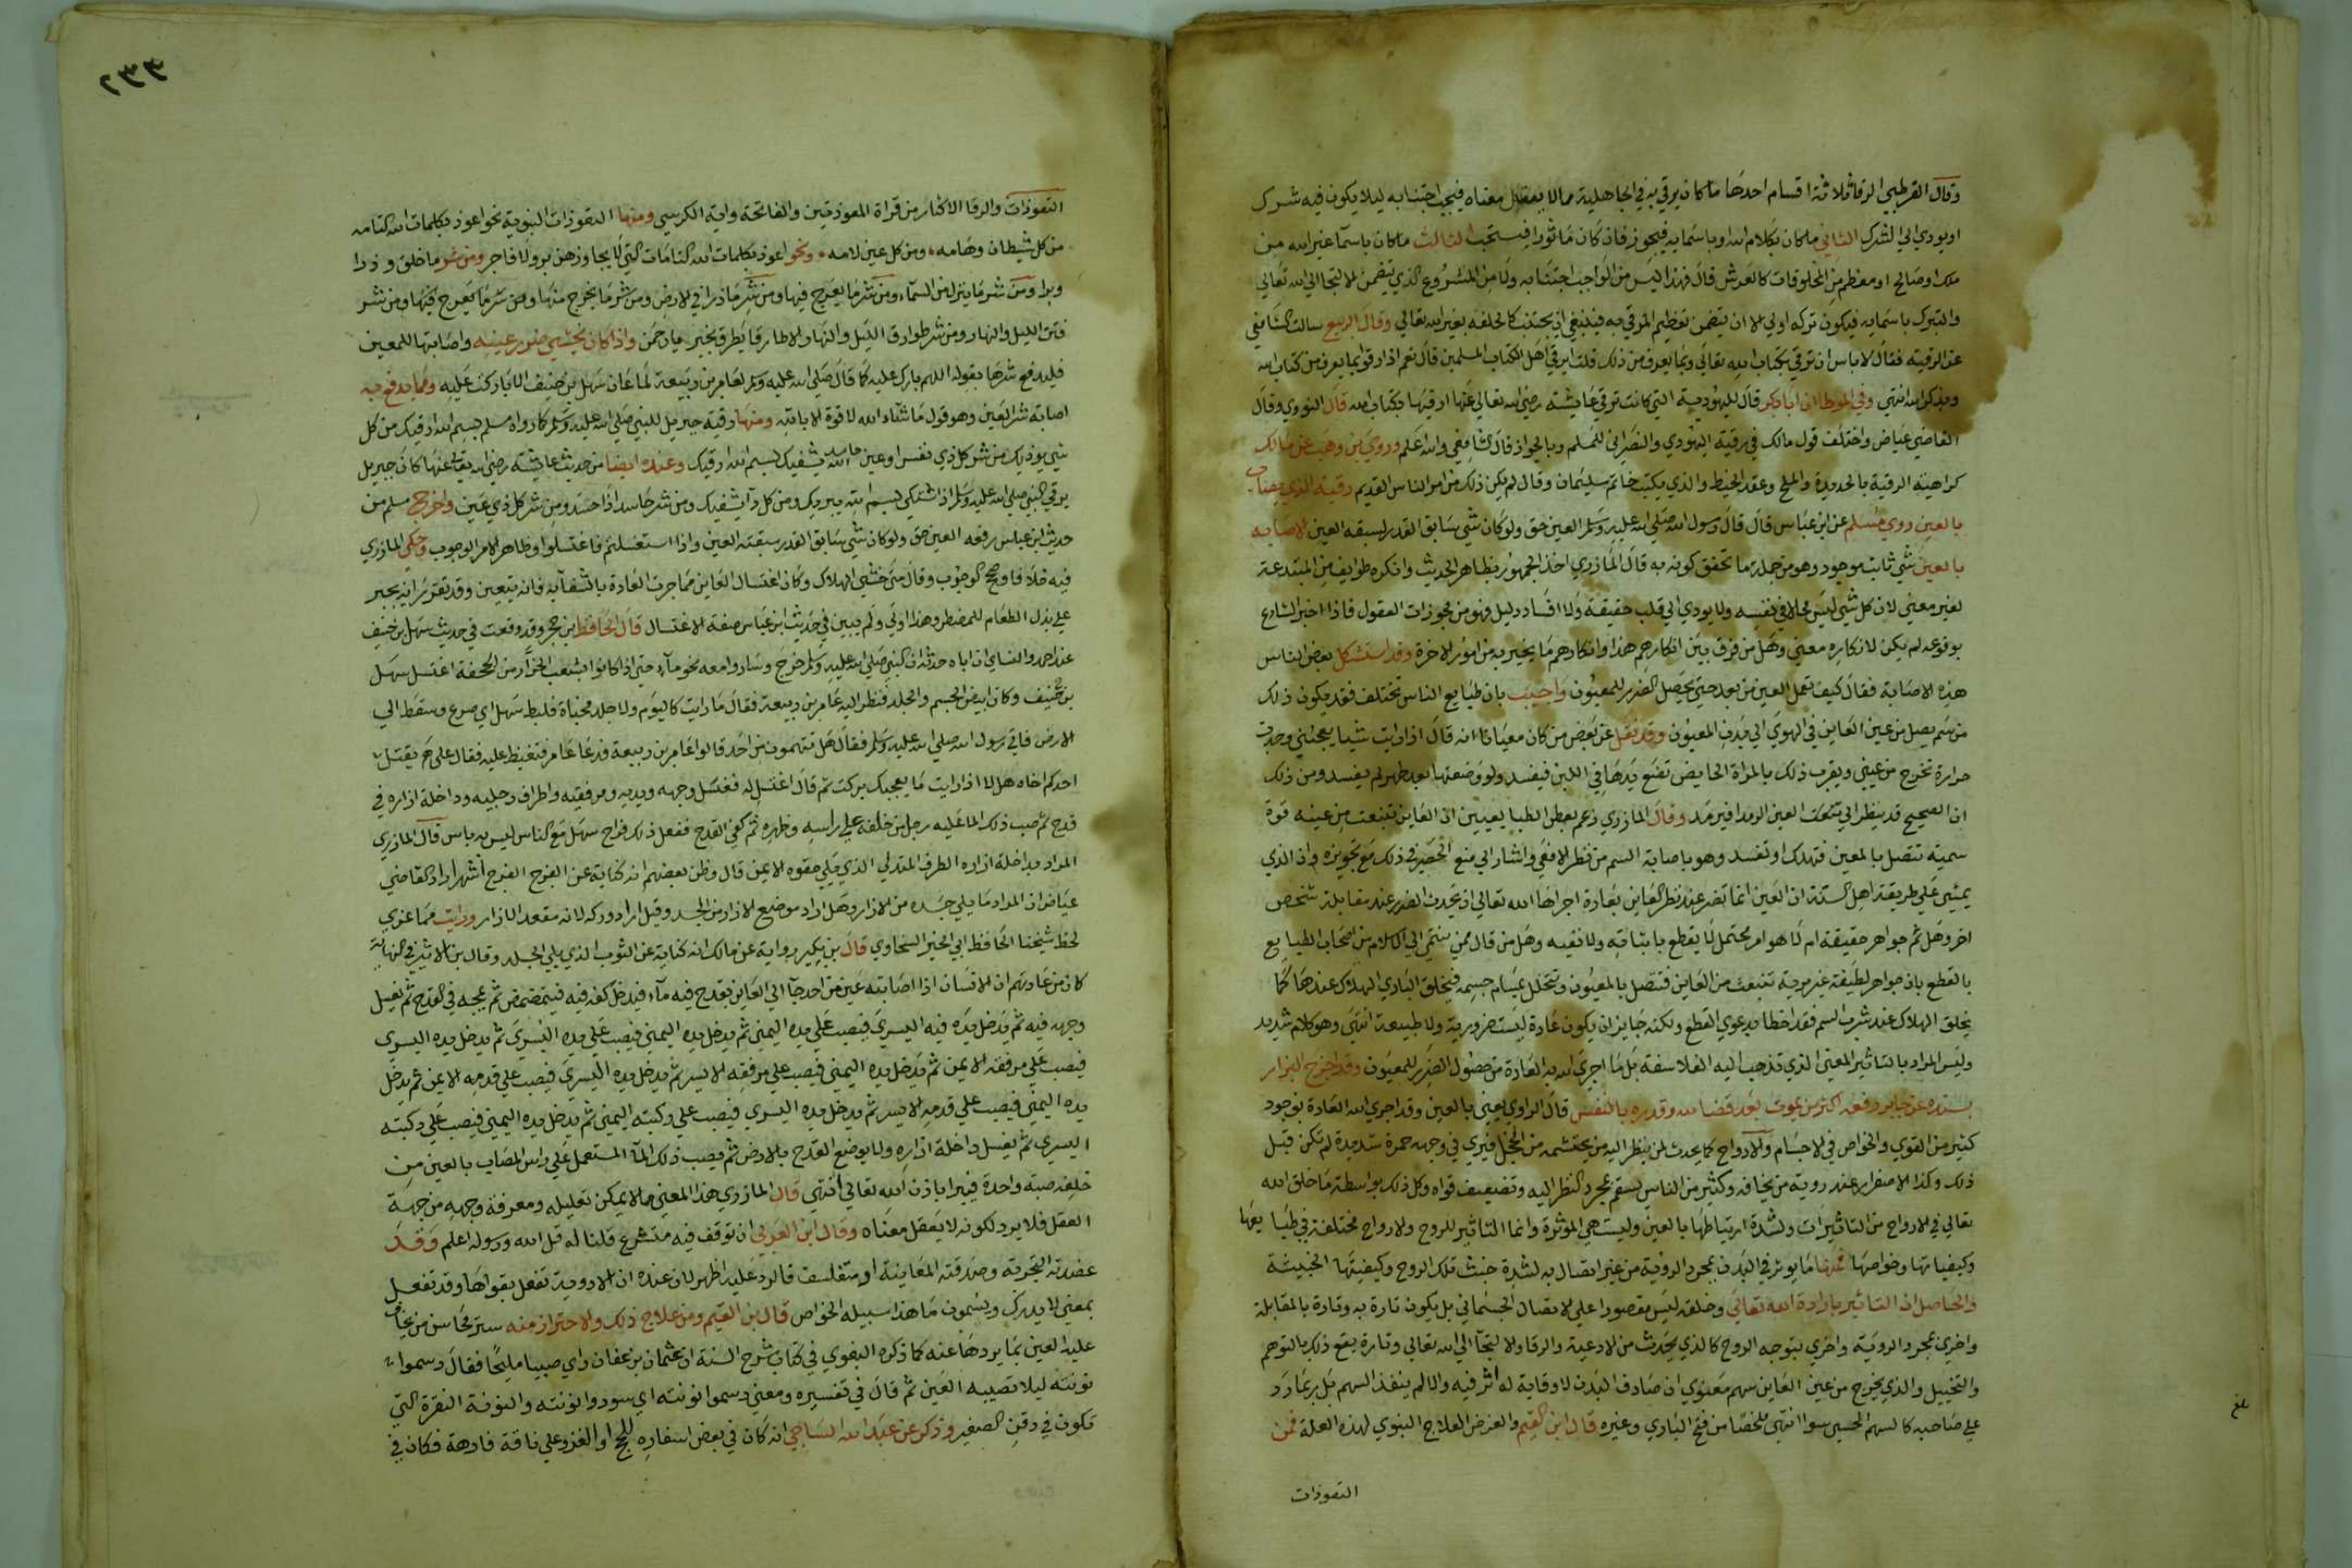 وقال القرطبي الرقا ثلاثة اقسام احدها ما كان يرقي به في الجاهلية مما لا يعقل معناه فيجب اجتنابه ليلا يكون فيه شرك
او يودي الي الشرك الثاني ما كان بكلام الله او باسمايه فيجوز فان كان ماثورا فيستحب الثالث ما كان باسما غير الله من
ملك او صالح او معظم من المخلوقات كالعرش قال فهذا ليس من الواجب اجتنابه ولا من المشروع الذي يتضمن الالتجا الي الله تعالي
والتبرك باسمايه فيكون تركه اولي الا ان يتضمن تعظيم المرقي به فينبغي ان يجتنب كالحلف بغير الله تعالي وقال الربيع سالت الشافعي
عن الرقية فقال لا باس ان ترقي بكتاب الله تعالي وبما يعرف من ذكر قلت ايرقي اهل الكتاب المسلمين قال نعم اذا رقوا بما يعرف من كتاب الله
وبذكر الله انتهي وفي الموطا ان ابا بكر قال لليهودية التي كانت ترقي عايشة رضي الله تعالي عنها ارقيها بكتاب الله قال النووي وقال
القاضي عياض واختلف قول مالك في رقية اليهودي والنصراني للمسلم وبالجواز قال الشافعي والله اعلم وروي بن وهب عن مالك
كراهية الرقية بالحديدة والملح وعقد الخيط والذي يكتب خاتم سليمان وقال لم يكن ذلك من امر الناس القديم رقية الذي يصاب
بالعين روي مسلم عن ابن عباس قال قال رسول الله صلي الله عليه وسلم العين حق ولو كان شي سابق القدر لسبقه العين الاصابه
بالعين شي ثابت موجود وهو من جملة ما تحقق كونه به قال المازري اخذ الجمهور بظاهر الحديث وانكره طوايف من المبتدعة
لغير معني لان كل شي ليس محالا في نفسه ولا يودي الي قلب حقيقة ولا افساد دليل فهو من مجوزات العقول فاذا اخبر الشارع
بوقوعه لم يكن لانكاره معني وهل من فرق بين انكارهم هذا وانكارهم ما يخبر به من امور الاخرة وقد استشكل بعض الناس
هذه الاصابة فقال كيف تعمل العين من بعد حتي يحصل الضرر للمعيون واجيب بان طبايع الناس تختلف فقد يكون ذلك
من سم يصل من عين العاين في الهوي الي بدن المعيون وقد نقل عن بعض من كان معيانا انه قال اذا رايت شيا يعجبني وجدت
حرارة تخرج من عيني ويقرب ذلك بالمراة الحايض تضع يدها في اللبن فيفسد ولو وضعتها بعد طهر لم يفسد ومن ذلك
ان الصحيح قد ينظر الي العين الرمدا فيرمد وقال المازري زعم بعض الطبايعيين ان العاين تنبعث من عينه قوة
سمية تتصل بالمعين فتهلك او تفسد وهو باصابة السم من نظر الافعي واشار الي منع الحصر في ذلك مع تجويزه وان الذي
يمشي علي طريقة اهل السنة ان العين انما تضر عند نظر العاين بعادة اجراها الله تعالي ان يحدث الضرر عند مقابلة شخص
اخر وهل ثم جواهر حقيقة ام لا هو امر محتمل لا يقطع باثباته ولا نفيه وهل من قال ممن ينتمي الي الاسلام من اصحاب الطبايع
بالقطع بان جواهر لطيفة غير مريية تنبعث من العاين فتتصل بالمعيون وتتخلل مسام جسمه فيخلق الباري الهلاك عندها كما
يخلق الهلاك عند شرب السم فقد اخطا بدعوي القطع ولكنه جايز ان يكون عادة ليست ضرورية ولا طبيعة انتهي وهو كلام شديد
وليس المراد بالتاثير المعني الذي تذهب اليه الفلاسفة بل ما اجري الله به العادة من حصول الضرر للمعيون وقد اخرج البزار
بسنده عن جابر رفعه اكثر من يموت بعد قضا الله وقدره بالنفس قال الراوي يعني بالعين وقد اجري الله العادة بوجود
كثير من القوي والخواص في الاجسام والارواح كما يحدث لمن ينظر اليه من يحتشمه من الخجل فيري في وجهه حمرة شديدة لم تكن قبل
ذلك وكذا الاصفرار عند روية من يخافه وكثير من الناس يسقم بمجرد النظر اليه وتضعيف قواه وكل ذلك بواسطة ما خلق الله
تعالي في الارواح من التاثيرات ولشدة ارتباطها بالعين وليست هي الموثرة وانما التاثير للروح والارواح مختلفة في طبايعها
وكيفياتها وخواصها فمنها ما يوثر في البدن بمجرد الروية من غير اتصال به لشدة خبث تلك الروح وكيفيتها الخبيثة
والحاصل ان التاثير بارادة الله تعالي وخلقه ليس مقصورا علي الاتصال الجسماني بل يكون تارة به وتارة بالمقابلة
واخري بمجرد الروية واخري بتوجه الروح كالذي يحدث من الادعية والرقا والالتجا الي الله تعالي وتارة يقع ذلك بالتوهم
والتخييل والذي يخرج من عين العاين سهم معنوي ان صادف البدن لا وقاية له اثر فيه والا لم ينفذ السهم بل ربما رد
علي صاحبه كالسهم الحسي سوا انتهي ملخصا من فتح الباري وغيره قال ابن القيم والغرض العلاج النبوي لهذه العلة فمن
التعوذات
بلغ
٢٣٣
التعوذات والرقا الاكثار من قراة المعوذتين والفاتحة واية الكرسي ومنها التعوذات النبوية نحو اعوذ بكلمات الله التامه
من كل شيطان وهامه ومن كل عين لامه ونحو اعوذ بكلمات الله التامات التي لا يجاوزهن بر ولا فاجر ومن شر ما خلق وذرا
وبرا ومن شر ما ينزل من السماء ومن شر ما يعرج فيها ومن شر ما ذرا في الارض ومن شر ما يخرج منها ومن شر ما يعرج فيها ومن شر
فتن الليل والنهار ومن شر طوارق الليل والنهار الا طارقا يطرق بخير يا رحمن واذا كان يخشي ضرر عينيه واصابتها للمعين
فليدفع شرها بقوله اللهم بارك عليه كما قال صلي الله عليه وسلم لعامر بن ربيعة لما عان سهل بن حنيف الا باركت عليه ومما يدفع به
اصابة شر العين وهو قول ما شاء الله لا قوة الا بالله ومنها رقية جبريل للنبي صلي الله عليه وسلم كما رواه مسلم بسم الله ارقيك من كل
شي يوذيك من شر كل ذي نفس او عين حاسد الله يشفيك بسم الله ارقيك وعنده ايضا من حديث عايشة رضي الله تعالي عنها كان جبريل
يرقي النبي صلي الله عليه وسلم اذا اشتكي بسم الله يبريك ومن كل دآ يشفيك ومن شر حاسد اذا حسد ومن شر كل ذي عين واخرج مسلم من
حديث ابن عباس رفعه العين حق ولو كان شي سابق القدر سبقته العين واذا استغسلتم فاغتسلوا وظاهر الامر الوجوب وحكي المازري
فيه خلافا وصحح الوجوب وقال متي خشي الهلاك وكان اغتسال العاين مما جرت العادة بالشفا به فانه يتعين وقد تقرر انه يجبر
علي بذل الطعام للمضطر وهذا اولي ولم يبين في حديث ابن عباس صفة الاغتسال قال الحافظ بن حجر وقد وقعت في حديث سهل بن حنيف
عند احمد والنساي ان اباه حدثه ان النبي صلي الله عليه وسلم خرج وساروا معه نحو مآء حتي اذا كانوا بشعب الخرار من الجحفة اغتسل سهل
بن حنيف وكان ابيض الجسم والجلد فنظر اليه عامر بن ربيعة فقال ما رايت كاليوم ولا جلد مخباة فلبط سهل اي صرع وسقط الي
الارض فاتي رسول الله صلي الله عليه وسلم فقال هل تتهمون من احد قالوا عامر بن ربيعة فدعا عامر فتغيظ عليه فقال علي م يقتل
احدكم اخاه هلا اذا رايت ما يعجبك بركت ثم قال اغتسل له فغسل وجهه ويديه ومرفقيه واطراف رجليه وداخلة ازاره في
قدح ثم صب ذلك الما عليه رجل من خلفه علي راسه وظهره ثم كفي القدح ففعل ذلك فراح سهل مع الناس ليس به باس قال المازري
المراد بداخلة ازاره الطرف المتدلي الذي يلي حقوه الايمن قال وظن بعضهم انه كناية عن الفرج انتهي زاد القاضي
عياض ان المراد ما يلي جسده من الازار وقيل اراد موضع الازار من الجسد وقيل اراد وركه لانه معقد الازار ورايت مما عزي
لحفظ شيخنا الحافظ ابي الخير السخاوي قال بن بكير رواية عن مالك انه كناية عن الثوب الذي يلي الجلد وقال بن الاثير في النهاية
كان من عادتهم ان الانسان اذا اصابته عين من احد جآ الي العاين بقدح فيه مآء فيدخل كفه فيه فيتمضمض ثم يمجه في القدح ثم يغسل
وجهه فيه ثم يدخل يده فيه اليسري فيصب علي يده اليمني ثم يدخل يده اليمني فيصب علي يده اليسري ثم يدخل يده اليسري
فيصب علي مرفقه الايمن ثم يدخل يده اليمني فيصب علي مرفقه الايسر ثم يدخل يده اليسري فيصب علي قدمه الايمن ثم يدخل
يده اليمني فيصب علي قدمه الايسر ثم يدخل يده اليسري فيصب علي ركبته اليمني ثم يدخل يده اليمني فيصب علي ركبته
اليسري ثم يغسل داخلة ازاره ولا يوضع القدح بالارض ثم يصب ذلك المآ المستعمل علي راس المصاب بالعين من
خلفه صبة واحدة فيبرا باذن الله تعالي انتهي قال المازري هذا المعني مالا يمكن تعليله ومعرفة وجهه من جهة
العقل فلا يرد لكونه لا يعقل معناه وقال ابن العربي ان توقف فيه متشرع قلنا له قل الله ورسوله اعلم وقد
عضدته التجربة وصدقته المعاينة او متفلسف فالرد عليه اظهر لان عنده ان الادوية تفعل بقواها وقد تفعل
بمعني لا يدرك ويسمون ما هذا سبيله الخواص قال بن القيم ومن علاج ذلك والاحتراز منه ستر محاسن من يخاف
عليه العين بما يردها عنه كما ذكره البغوي في كتاب شرح السنة ان عثمان بن عفان راي صبيا مليحا فقال دسموا
نونته ليلا تصيبه العين ثم قال في تفسيره ومعني دسموا نونته اي سودوا نونته والنونة النقرة التي
تكون في ذقن الصغير وذكر عن عبد الله الساجي انه كان في بعض اسفاره للحج او الغزو علي ناقة فارهة فكان في